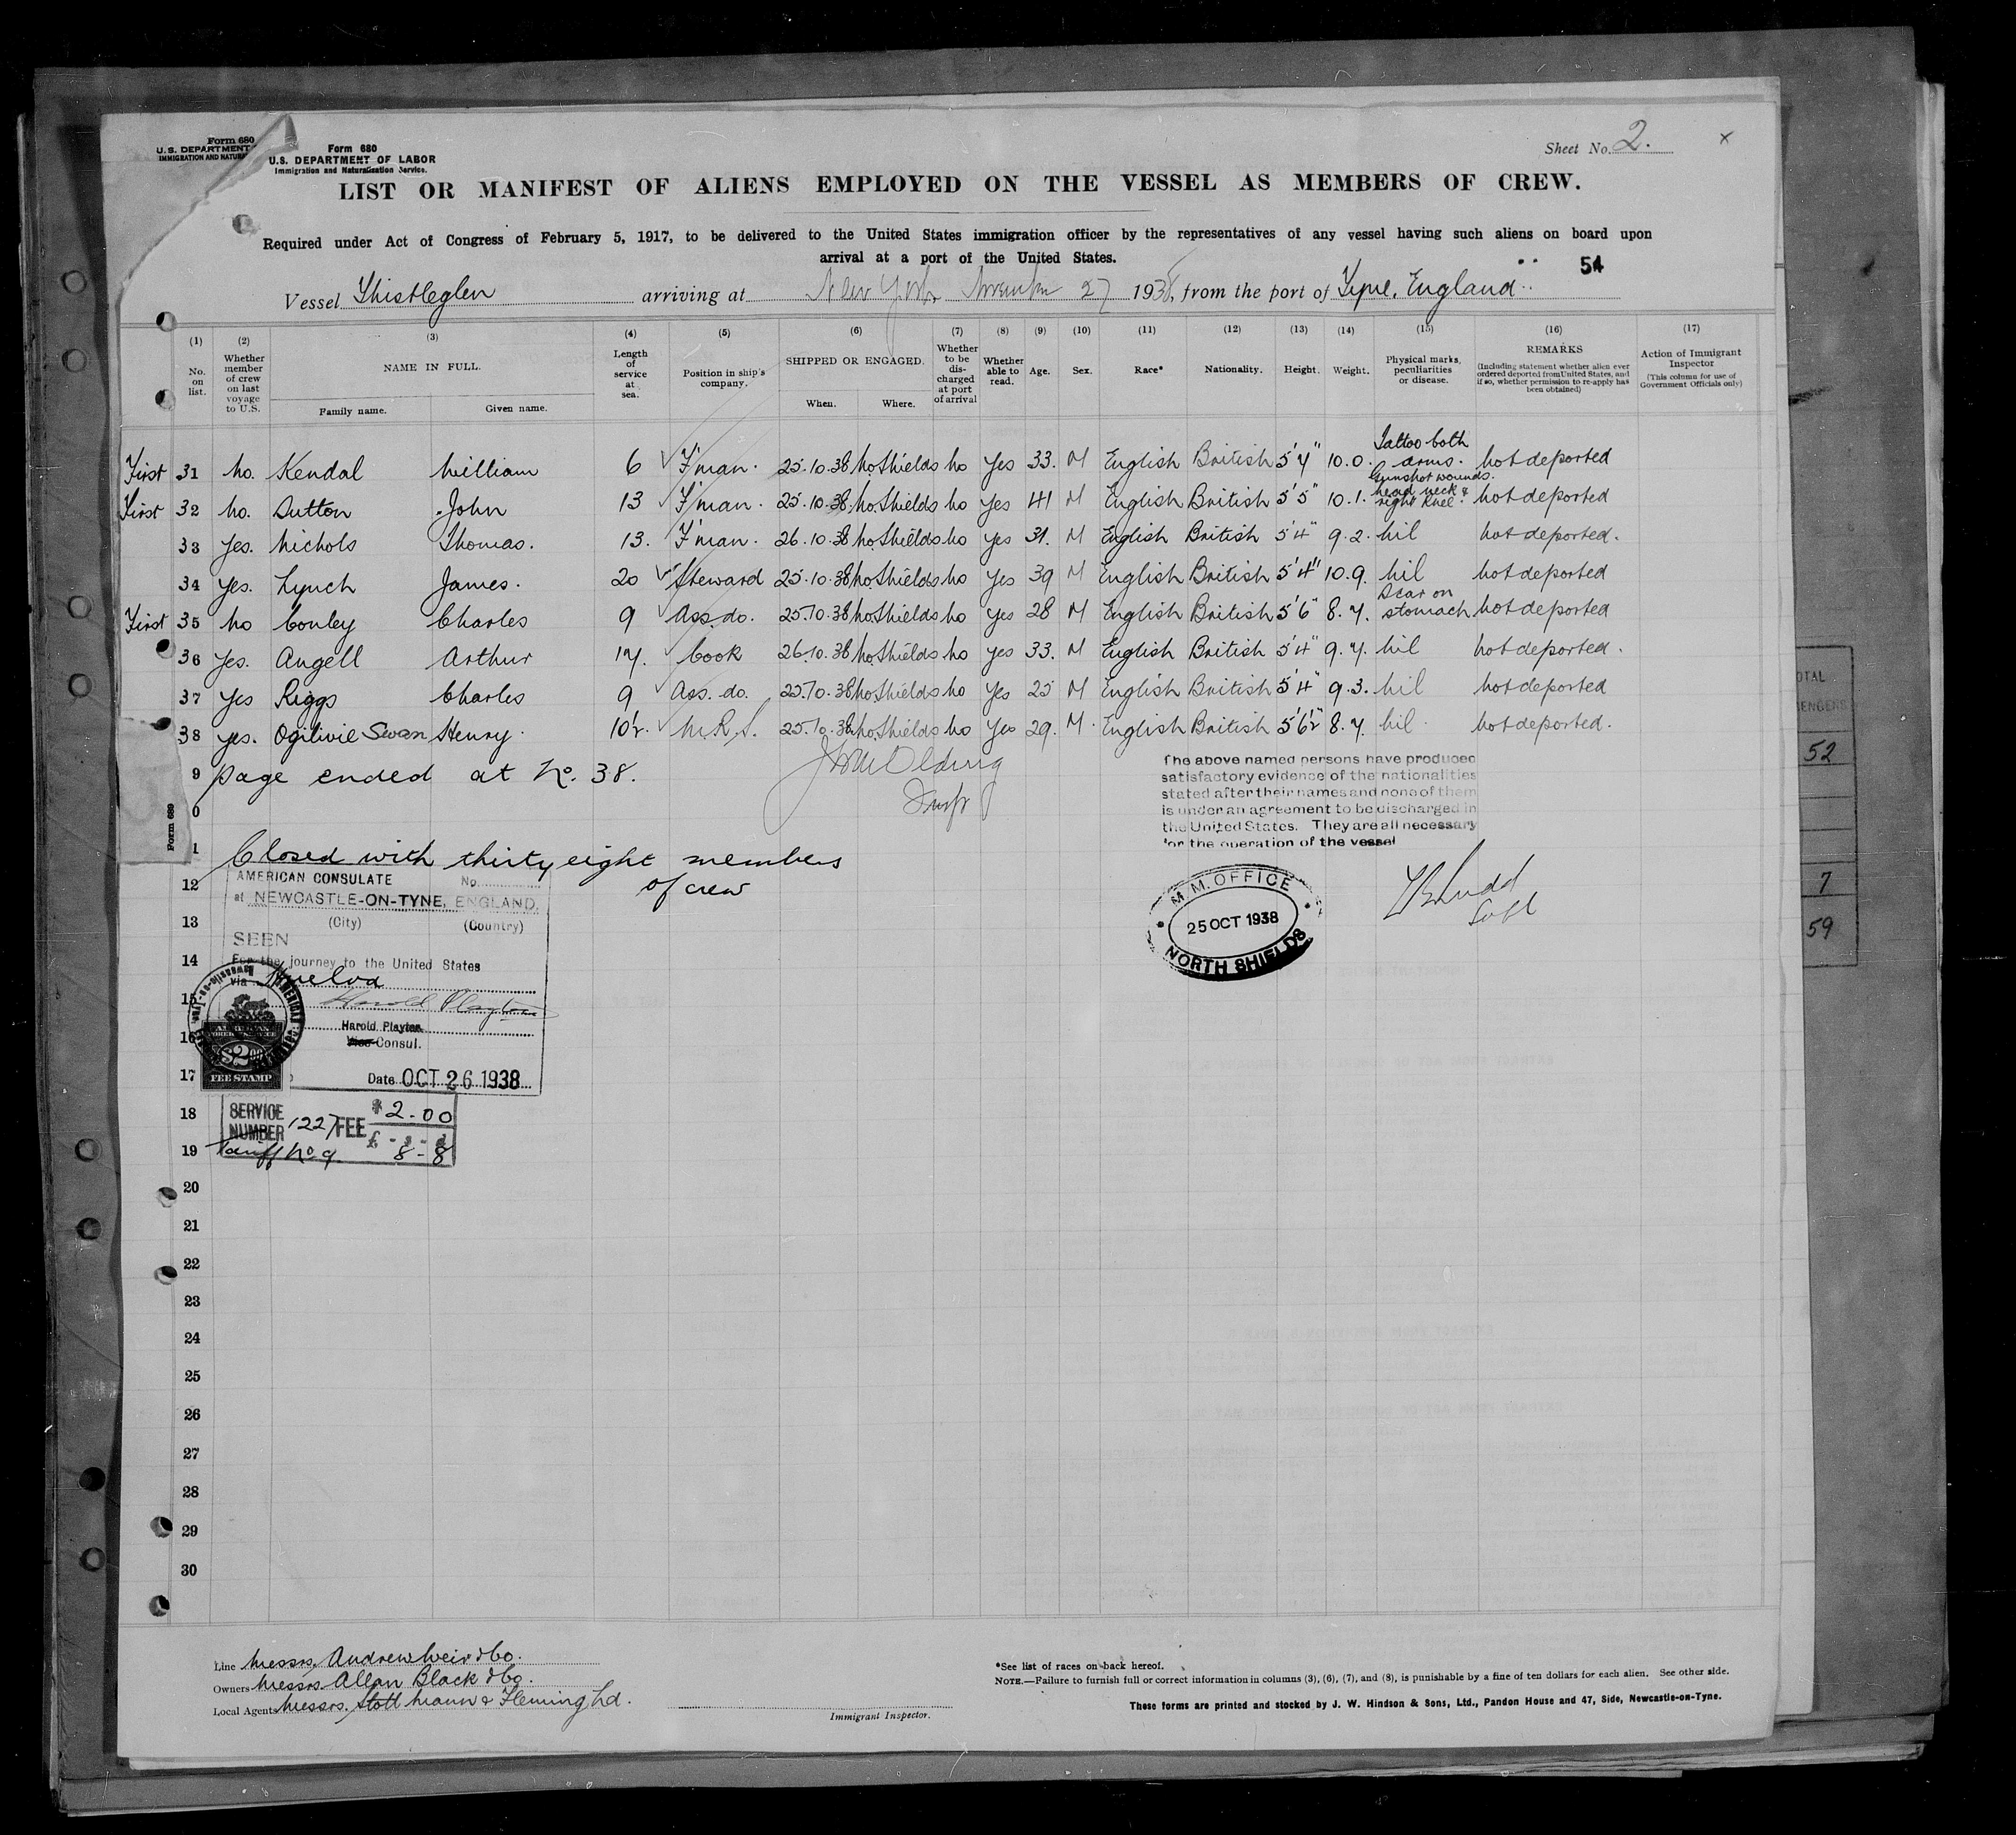 Form 680
U.S. DEPARTMENT
IMMIGRATION AND NATURA
Form 680
U.S. DEPARTMENT OF LABOR
Immigration and Naturalization Service.
Sheet No. 2. x
LIST OR MANIFEST OF ALIENS EMPLOYED ON THE VESSEL AS MEMBERS OF CREW.
Required under Act of Congress of February 5, 1917, to be delivered to the United States immigration officer by the representatives of any vessel having such aliens on board upon
arrival at a port of the United States.
54
Vessel Thistleglen arriving at New York November 27 1938, from the port of Tyne, England
(1) (2) (3) (4) (5) (6) (7) (8) (9) (10) (11) (12) (13) (14) (15) (16) (17)
No. on list. Whether member of crew on last voyage to U.S. NAME IN FULL. Family name. Given name. Length of service at sea. Position in ship's company. SHIPPED OR ENGAGED. When. Where. Whether to be discharged at port of arrival Whether able to read. Age. Sex. Race* Nationality. Height. Weight. Physical marks, peculiarities or disease. REMARKS (Including statement whether alien ever ordered deported from United States, and if so, whether permission to re-apply has been obtained) Action of Immigrant Inspector (This column for use of Government Officials only)
First 31 No. Kendal William 6 F'man. 25.10.38 No Shields No Yes 33. M English British 5'7" 10.0. Tattoo both arms. Not deported
First 32 No. Dutton John 13 F'man. 25.10.38 No Shields No Yes 41 M English British 5'5" 10.1. Gunshot wounds. head neck & right knee. Not deported
33 Yes. Nichols Thomas. 13. F'man. 26.10.38 No Shields No Yes 31. M English British 5'4" 9.2. Nil Not deported.
34 Yes. Lynch James. 20 Steward 25.10.38 No Shields No Yes 39 M English British 5'4" 10.9. Nil Not deported
First 35 No Conley Charles 9 Ass. do. 25.10.38 No Shields No Yes 28 M English British 5'6" 8.7. Scar on stomach Not deported
36 Yes. Angell Arthur 17. Cook 26.10.38 No Shields No Yes 33. M English British 5'4" 9.7. Nil Not deported.
37 Yes Riggs Charles 9 Ass. do. 25.10.38 No Shields No Yes 25 M English British 5'4" 9.3. Nil Not deported
38 Yes. Ogilvie Swan Henry. 10½. 25.10.38 No Shields No Yes 29. M. English British 5'6½" 8.7. Nil. Not deported.
9 Page ended at No. 38.
The above named persons have produced
satisfactory evidence of the nationalities
stated after their names and none of them
is under an agreement to be discharged in
the United States. They are all necessary
for the operation of the vessel
0
Form 689
1 Closed with thirty eight members
of crew
12
AMERICAN CONSULATE No.
at NEWCASTLE-ON-TYNE, ENGLAND.
13 (City) (Country)
SEEN
14 For the journey to the United States
via Huelva
15 Harold Playter
Harold Playter.
16 Vice Consul.
AMERICAN
FOREIGN SERVICE
$2.00
17 FEE STAMP
Date OCT 26 1938
M.M. OFFICE
25 OCT 1938
NORTH SHIELDS
18 SERVICE NUMBER 1227 FEE $2.00
19 Tariff No 9. £ - s - d 8-8
20
21
22
23
24
25
26
27
28
29
30
OTAL
ENGERS
52
7
59
Line Messrs. Andrew Weir & Co.
Owners Messrs. Allan Black & Co.
Local Agents Messrs. Stott Mann & Fleming Ld.
Immigrant Inspector.
*See list of races on back hereof.
NOTE.—Failure to furnish full or correct information in columns (3), (6), (7), and (8), is punishable by a fine of ten dollars for each alien. See other side.
These forms are printed and stocked by J. W. Hindson & Sons, Ltd., Pandon House and 47, Side, Newcastle-on-Tyne.